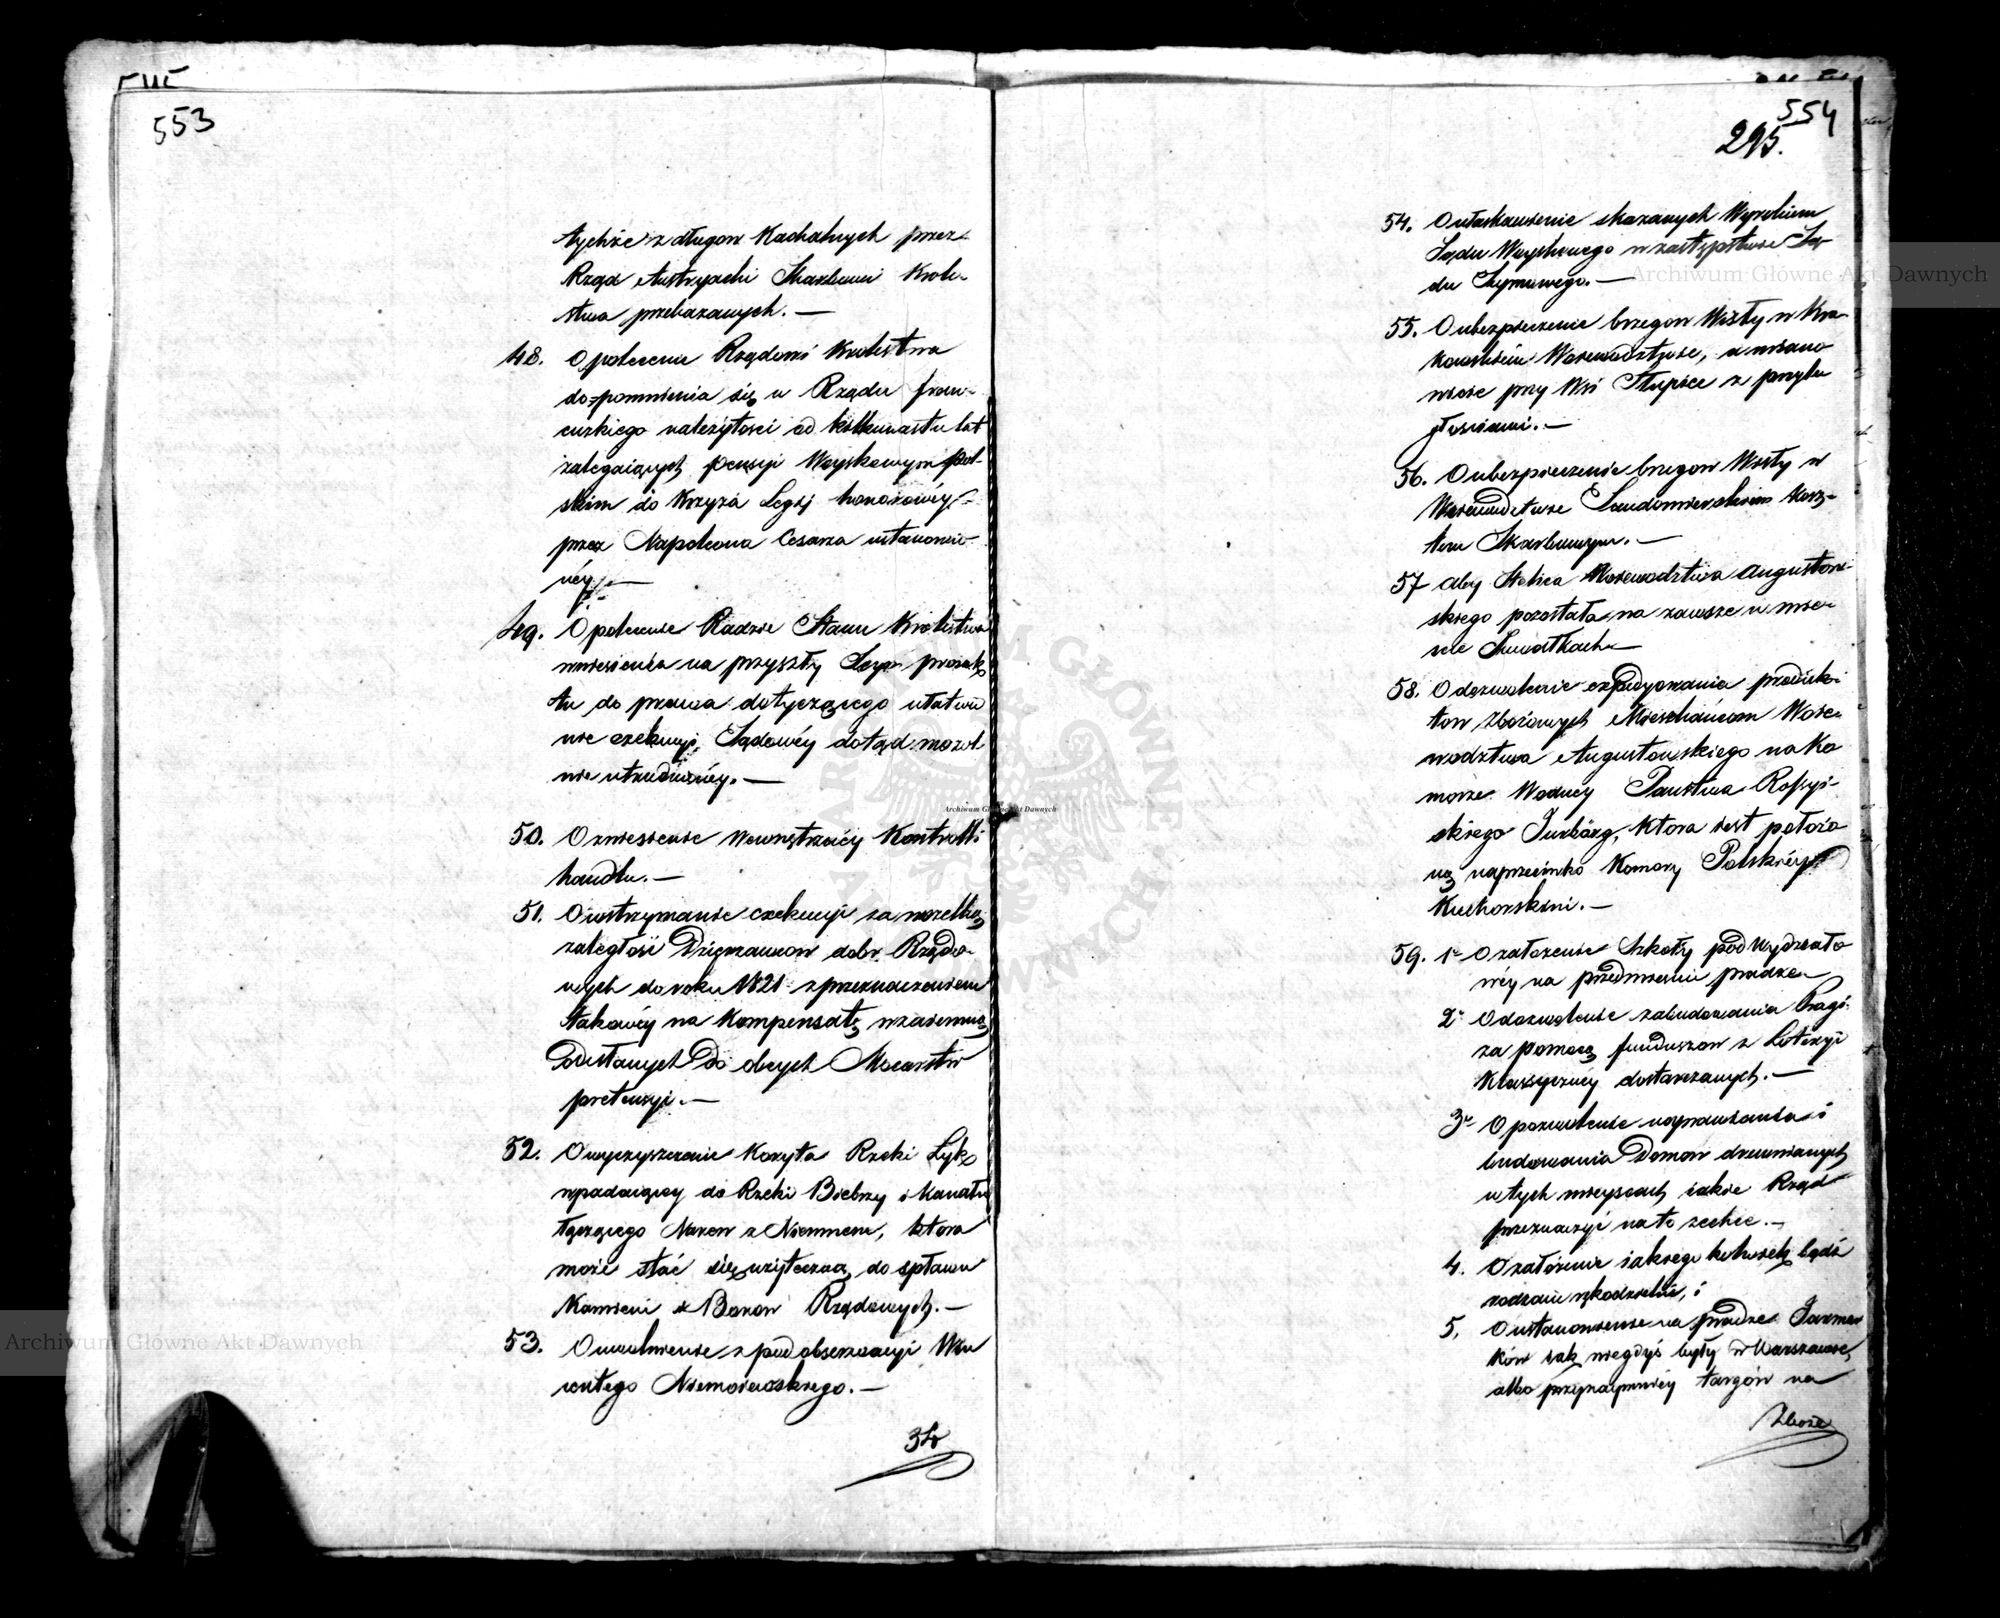 553
tychże z długow Kachalnych przez
Rząd Austryacki Skarbowi Krole-
stwa przekazanych. —
48. O polecenie Rządowi Krolestwa
dopomnienia się u Rządu fran-
cuzkiego należytości od kilkunastu lat
zalegaiących pensyi Woyskowym pol-
skim do Krzyża Legij honorowéy
przez Napoleona Cesarza ustanowio-
néy. —
49. O polecenie Radzie Stanu Krolestwa
wniesienia na przyszły Seym proiek
tu do prawa dotyczącego ułatwie
nie exekucyi Sądowéy dotąd mozol
nie utrudnionéy. —
50. O zniesienie Wewnętrznéy Kontrolli
handlu. —
51. O wstrzymanie exekucyi za wszelkie
zaległości Dzierzawcow dobr Rządo-
wych do roku 1821 z przeznaczeniem
takowéy na Kompensatę wzaiemną
Podusłanych Do obcych Mocarstw
pretensyi. —
52. O wyczyszczenie Koryta Rzeki Łyk
wpadaiącey do Rzeki Biebrzy i Kanału
łączącego Narew z Niemnem, ktora
może stać się użyteczną do spławu
Kamieni z Borow Rządowych. —
53. O uwolnienie z pod obserwacyi Win
centego Niemoiewskiego. —
54
554
295.
54. O ułaskawienie skazanych Wyrokiem
Sądu Woyskowego w zastępstwie Są-
du Seymowego. —
55. O ubezpieczenie brzegow Wisły w Kra
kowskiém Woiewództwie, a miano
wicie przy Wsi Słupiec z przyle
głościami. —
56. O ubezpieczenie brzegow Wisły w
Woiewudztwie Sandomierskiem Kosz-
tem Skarbowym. —
57 Aby Stolica Woiewodztwa Augustow-
skiego pozostała na zawsze w mie-
scie Suwałkach —
58. O dozwolenie expedyowania produk-
tow Zbożowych Mieszkańcom Woie-
wodztwa Augustowskiego na Ko
morze Wodney Państwa Rossyi-
skiego Jurbarg, ktora iest położo
na naprzeciwko Komory Polskiéy
Kuchorskini. —
59. 1º O założenie Szkoły pod Wydziało
wéy na przedmieściu pradze
2º O dozwolenie zabudowania Pragi
za pomocą funduszow z Loteryi
Klassycznéy dostarczanych. —
3º O pozwolenie naprawiania i
budowania Domow drewnianych
w tych mieyscach iakie Rząd
przeznaczyć na to zechce. —
4. O założenie iakiego kolwiek bądź
rodzaiu rękodzielni, i
5. O ustanowienie na pradze Jarmar
ków iak niegdyś były w Warszawie,
albo przynaymniéy targów na
Zboże
Archiwum Główne Akt Dawnych
Archiwum Główne Akt Dawnych
Archiwum Główne Akt Dawnych